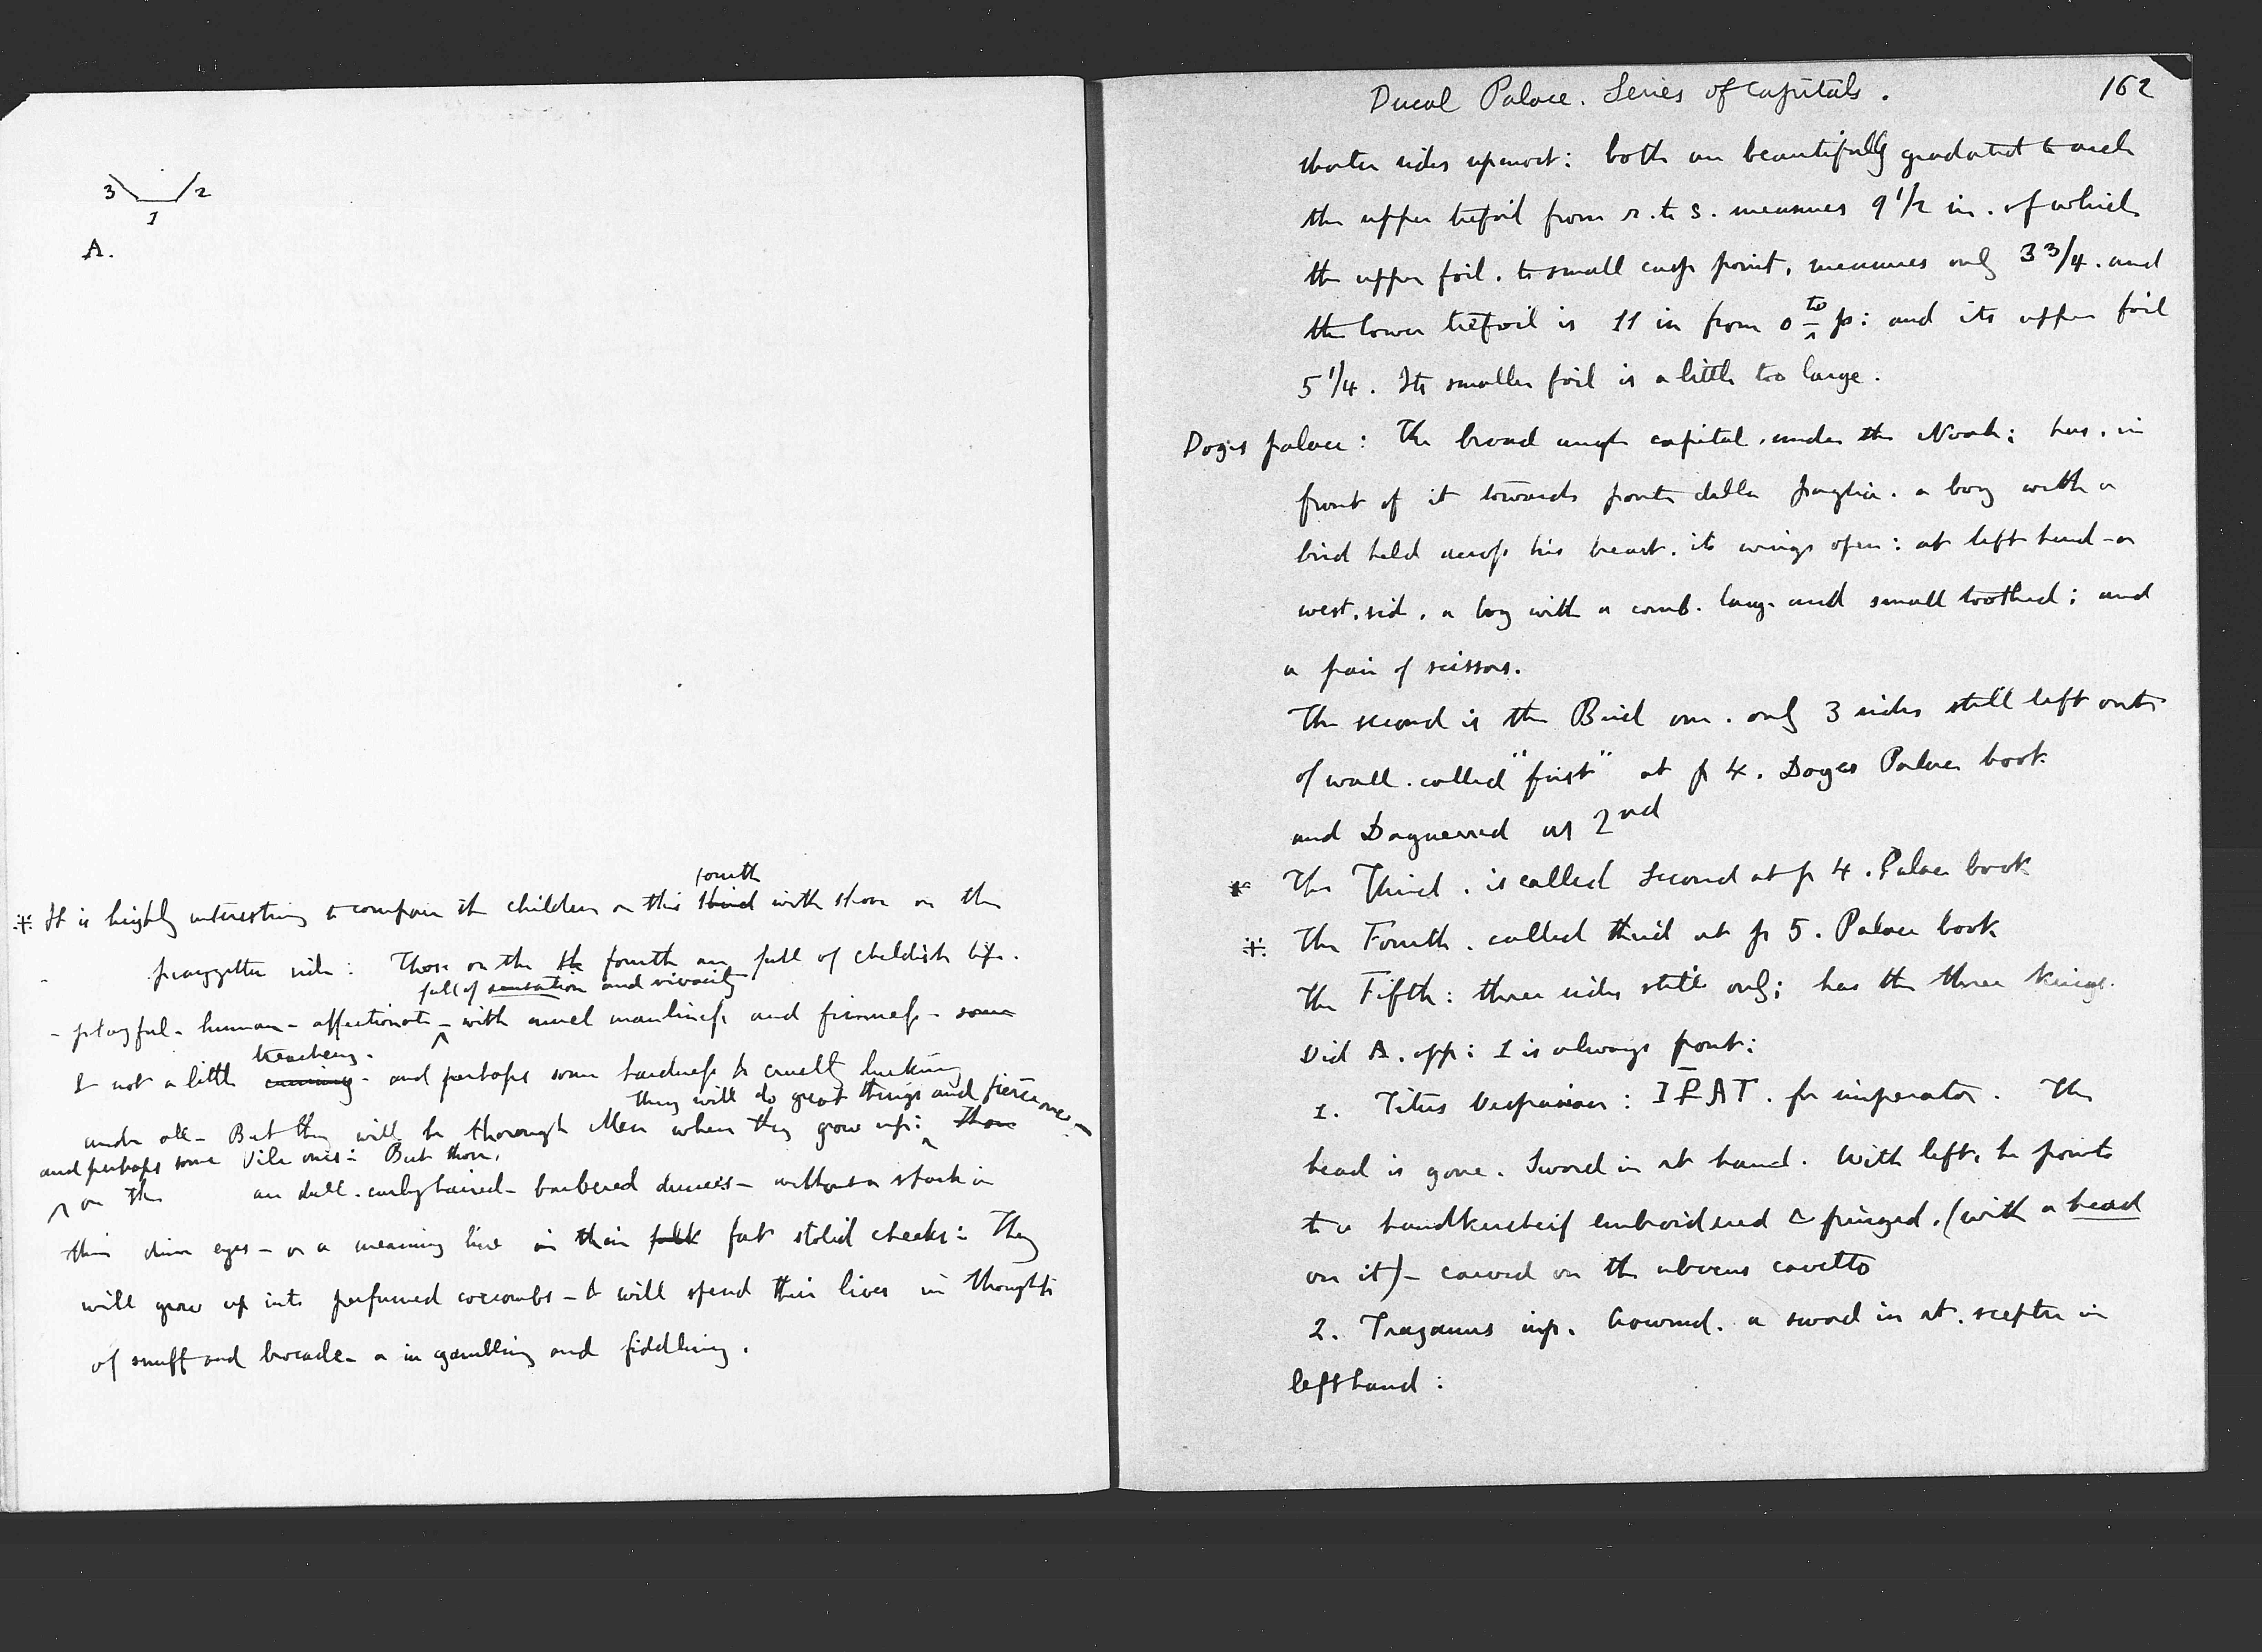 3 2
1
A.
fourth
⁜ It is highly interesting to compare the children on this third with those on the
piazzetta side: Those on the the fourth are full of childish life.
full of sensation and vivacity
- playful - human - affectionate - with much manliness and firmness - some
treachery.
& not a little cunning - and perhaps some hardness & cruelty lurking
they will do great things and fierce ones -
under all - But they will be thorough Men when they grow up: those
and perhaps some vile ones: But those,
on the are dull - curly haired - barbered dunces - without a spark in
their dim eyes - or a meaning line in their fat stolid cheeks: They
will grow up into perfumed coxcombs - & will spend their lives in thoughts
of snuff and brocade - or in gambling and fiddling.
Ducal Palace. Series of Capitals. 162
shorter sides upmost: both are beautifully gradated to each
the upper trefoil from r. to s. measures 9 1/2 in. of which
the upper foil. to small cusp point, measures only 3 3/4. and
to
the lower trefoil is 11 in from o p: and its upper foil
5 1/4. Its smaller foil is a little too large.
Doges palace: The broad angle capital, under the Noah; has, in
front of it towards ponte della paglia. a boy with a
bird held across his breast. its wings open: at left hand - or
west, side, a boy with a comb. large and small toothed; and
a pair of scissors.
The second is the Bird one. only 3 sides still left out
of wall. called "first" at p 4. Doges Palace book
and Daguerred as 2nd
* The Third. is called Second at p 4. Palace book
⁜ The Fourth. called third at p 5. Palace book
The Fifth: three sides still only; has the three kings.
Vid A. opp: 1 is always front:
1. Titus Vespasian: IPAT. for imperator. The
head is gone. Sword in rt hand. With left, he points
to a handkercheif embroidered & fringed. (with a head
on it) - carved on the abacus cavetto
2. Trajanus imp. Crowned. a sword in rt. sceptre in
left hand: